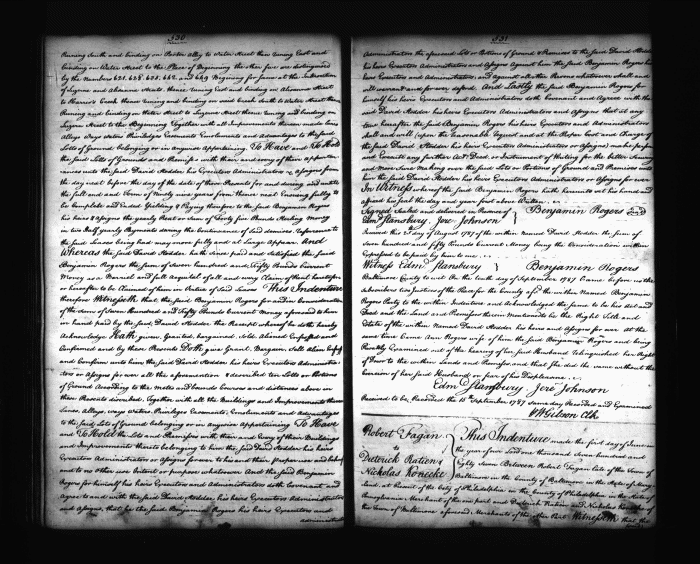 530
Runing South and binding on Porter alley to Water Street then runing East and
binding on Water Street to the Place of Beginning the other five are distinguished
by the Numbers 637. 638. 639. 662. and 649 Begining for same at the Intersection
of Eugene and Alisanna Streets thence runing East and binding on Alisanna Street
to Harris's Creek thence runing and binding on said Creek South to Water Street then
Runing and binding on Water Street to Eugene Street thence runing and binding on
Eugene Street to the Beginning Together with all Improvements thereon made lanes
alleys Ways Waters Priviledges Easments Emoluments and Advantages to the said
Lotts of Ground belonging or in anywise appertaining. To Have and To Hold
the said Lotts of Grounds and Premises with their and every of their appurten-
ances unto the said David Hodder his Executors Administrators & Assigns from
the day next before the day of the date of these Presents for and during and untill
the full and end Term of Ninety nine years from thence next Ensuing fully to
be Compleat and Ended Yielding & Paying therefor to the said Benjamin Rogers
his heirs & Assigns the yearly Rent or Sum of Forty five Pounds Sterling Money
in two half yearly Payments during the Continuance of said demises Reference to
the said Leases being had may more fully and at Large Appear. And
Whereas the said David Hodder has since paid and satisfied the said
Benjamin Rogers the sum of Seven hundred and Fifty Pounds Current
Money as a Barrial and full acquital of all and every Claim of Rent heretofore
or hereafter to be Claimed of him in Virtue of said Leases This Indenture
therefore Witnesseth that the said Benjamin Rogers for and in Consideration
of the sum of Seven Hundred and Fifty Pounds Current Money aforesaid to him
in hand paid by the said David Hodder the Receipt whereof he doth hereby
acknowledge Hath given Granted bargained Sold Aliened Enfeoffed and
Confirmed and by these Presents Doth give Grant Bargain Sell alien Enfeoff
and Confirm unto him the said David Hodder his heirs Executors Administra
tors or Assigns for ever all the aforementioned & described ten Lotts or Portions
of Ground According to the metes and bounds Courses and distances above in
these Presents described. Together with all the Buildings and Improvements thereon
Lanes Alleys ways Waters Privileges Easments Emoluments and Advantages
to the said Lotts of Ground belonging or in anywise Appertaining To Have
and To Hold the Lots and Premises with their and Every of their Buildings
and Improvements thereto belonging to him the said David Hodder his heirs
Executors Administrators or Assigns forever to his and their proper use and behoof
and to no other use Intent or purpose whatsoever. And the said Benjamin
Rogers for himself his heirs Executors and Administrators doth Covenant and
Agree to and with the said David Hodder his heirs Executors Administrators
and Assigns, that he the said Benjamin Rogers his heirs Executors and
administrators
531
Administrators the aforesaid Lots or Portions of Ground & Premises to the said David Hodder
his heirs Executors Administrators and Assigns Against him the said Benjamin Rogers his
heirs Executors and Administrators and against all other Persons whatsoever shall and
will warrant and for ever defend. And Lastly the said Benjamin Rogers for
himself his heirs Executors and Administrators doth Covenant and Agree with the
said David Hodder his heirs Executors Administrators and Assigns that at any
time hereafter the said Benjamin Rogers his heirs Executors and Administrators
shall and will (upon the reasonable Request and at the Proper Cost and Charge of
the said David Hodder his heirs Executors Administrators or Assigns) make perform
and Execute any further Act Deed or Instrument of Writing for the better Securing
and more Sure Making over the said Lotts or Portions of Ground and Premises unto
him the said David Hodder his heirs Executors Administrators or Assigns for ever
In Witness whereof the said Benjamin Rogers hath hereunto set his hand and
affixed his Seal the day and year first above Written
Signed Sealed and delivered in Presence of } Benjamin Rogers Seal
Edmd Stansbury, Jere Johnson
Received this day of August 1787 of the within Named David Hodder the sum of
Seven hundred and fifty Pounds Current Money being the Consideration within
Expressed to be paid by him to me
Witness Edmd Stansbury } Benjamin Rogers
Baltimore County to wit On the tenth day of September 1787 Came before us the
Subscribers two Justices of the Peace for the County aforesd the within Named Benjamin
Rogers Party to the within Indenture and acknowledged the same to be his Act and
Deed and the Land and Premises therein mentioned to be the Right Title and
Estate of the within Named David Hodder his heirs and Assigns for ever At the
same time Came Ann Rogers wife of him the said Benjamin Rogers and being
Privately Examined out of the hearing of her said Husband Relinquished her Right
of Dower to the within Lands and Premises, and that she did the same without the
Coercion of her said Husband or fear of his Displeasure
Edmd Stansbury Jere Johnson
Received to be Recorded the 18th September 1787 same day Recorded and Examined
Wm Gibson Clk
Robert Fagan
to
Dieterick Ratien
Nicholas Konecke
This Indenture made the first day of June in
the year of our Lord one thousand Seven hundred and
Eighty Seven Between Robert Fagan late of the Town of
Baltimore in the County of Baltimore in the State of Mary
land, at Present of the City of Philadelphia in the County of Philadelphia in the State of
Pennsylvania Merchant of the one part and Dieterick Ratien and Nicholas Konecke of
the Town of Baltimore aforesaid Merchants of the other Part Witnesseth that the